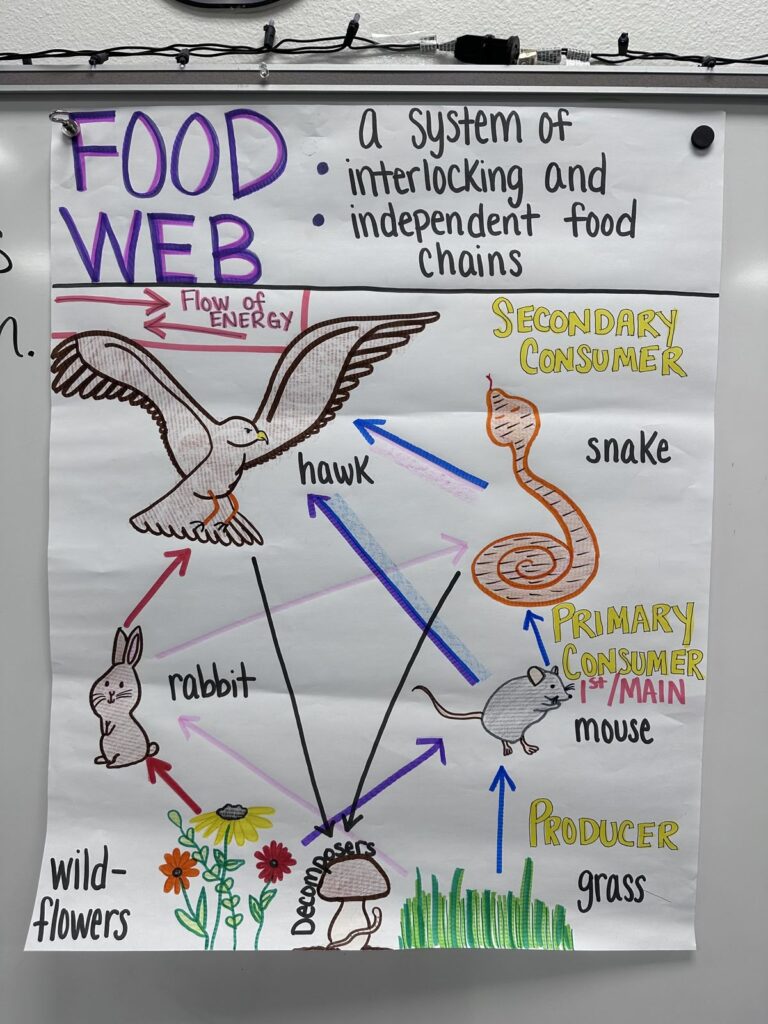 FOOD
WEB
a system of
• interlocking and
• independent food
chains
Flow of
ENERGY
SECONDARY
CONSUMER
snake
hawk
PRIMARY
CONSUMER
1st/MAIN
mouse
rabbit
PRODUCER
grass
Decomposers
wild-
flowers